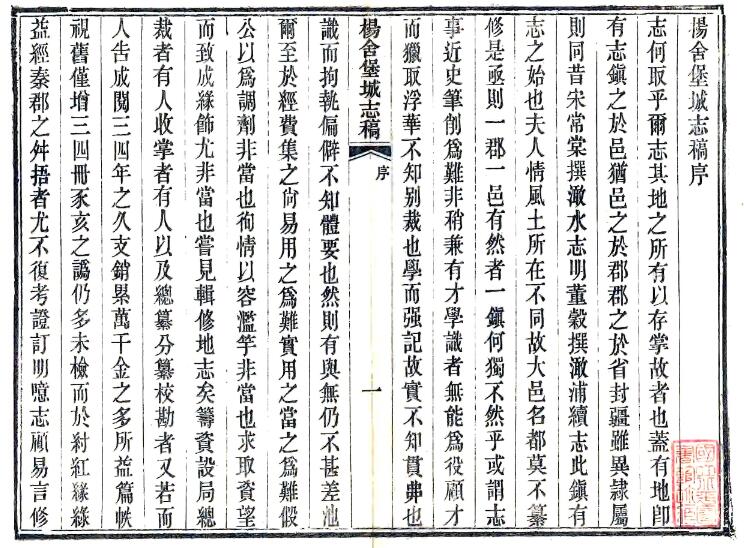 楊舍堡城志稿序
志何取乎爾志其地之所有以存掌故者也蓋有地卽
有志鎭之於邑猶邑之於郡郡之於省封疆雖異隷屬
則同昔宋常棠撰澉水志明董榖撰澉浦續志此鎭有
志之始也夫人情風土所在不同故大邑名都莫不纂
修是亟則一郡一邑有然者一鎭何獨不然乎或謂志
事近史筆削爲難非稍兼有才學識者無能爲役顧才
而獵取浮華不知別裁也學而强記故實不知貫弗也
楊舍堡城志稿
序
一
識而拘執偏僻不知體要也然則有與無仍不甚差池
爾至於經費集之尙易用之爲難實用之當之爲難假
公以爲調劑非當也徇情以容濫竽非當也求取資望
而致成緣飾尤非當也嘗見輯修地志矣籌資設局總
裁者有人收掌者有人以及總纂分纂校勘者又若而
人吿成閱三四年之久支銷累萬千金之多所益篇帙
視舊僅增三四冊豕亥之譌仍多未檢而於紂紅緣綠
益經秦郡之舛捂者尤不復考證訂明噫志顧易言修